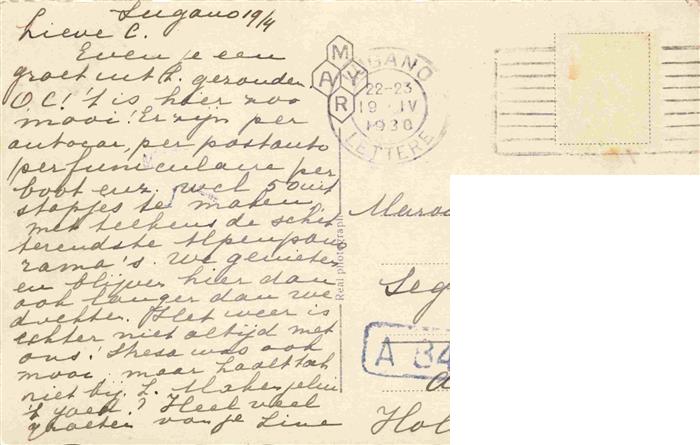 Lugano 19/4
Lieve C.
Even je een
groet uit L. gezonden.
O, C! 't is hier zoo
mooi! Er zijn per
autocar, per postauto
per funiculaire per
boot enz. wel 50 uit
stapjes te maken,
met telkens de schit
terendste Alpenpano
rama's. We genieten
en blijven hier dan
ook langer dan we
dachten. Het weer is
echter niet altijd met
ons! Stresa was ook
mooi maar haalt toch
niet bij L. Maken jelui
't goed? Heel veel
groeten van je Line
MAYR
LUGANO
22-23
19 · IV
1930
LETTERE
Real photograph
Seg
A 84
Hol